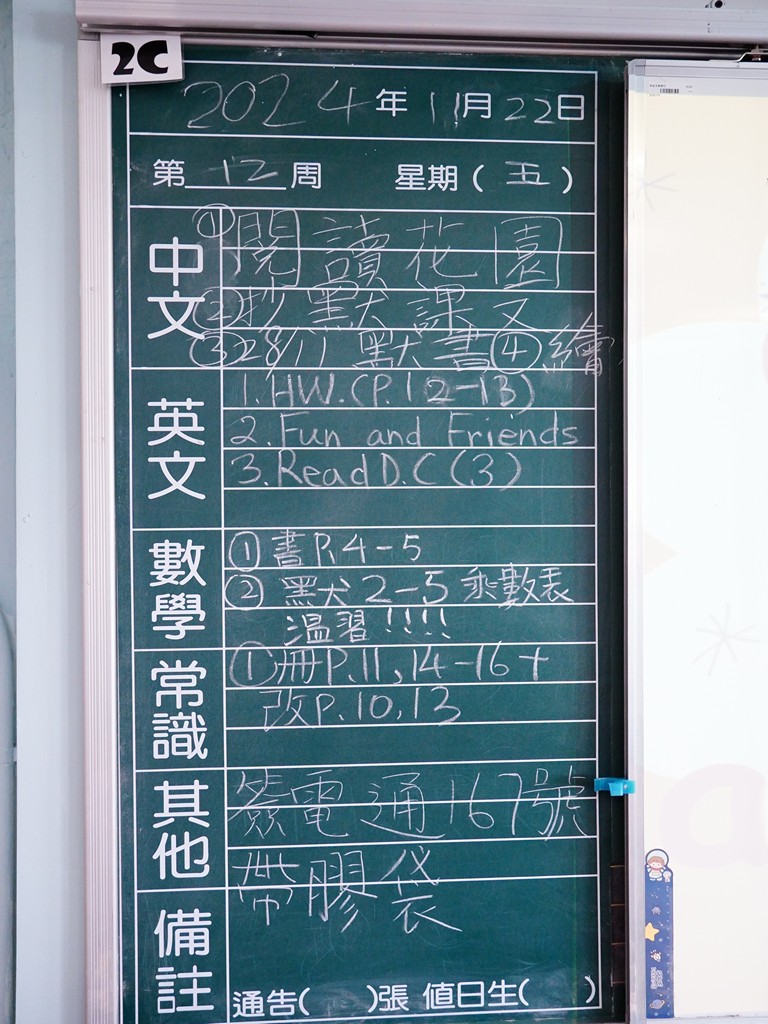 2C
2024年11月22日
第12周 星期(五)
中文
①閱讀花園
②抄默課文
③28/11 默書④繪
英文
1.HW.(P.12-13)
2.Fun and Friends
3.Read D.C(3)
數學
①書P.4-5
②默2-5乘數表
溫習!!!!
常識
①冊P.11,14-16+
改P.10,13
其他
簽電通167號
帶膠袋
備註
通告( )張 值日生( )